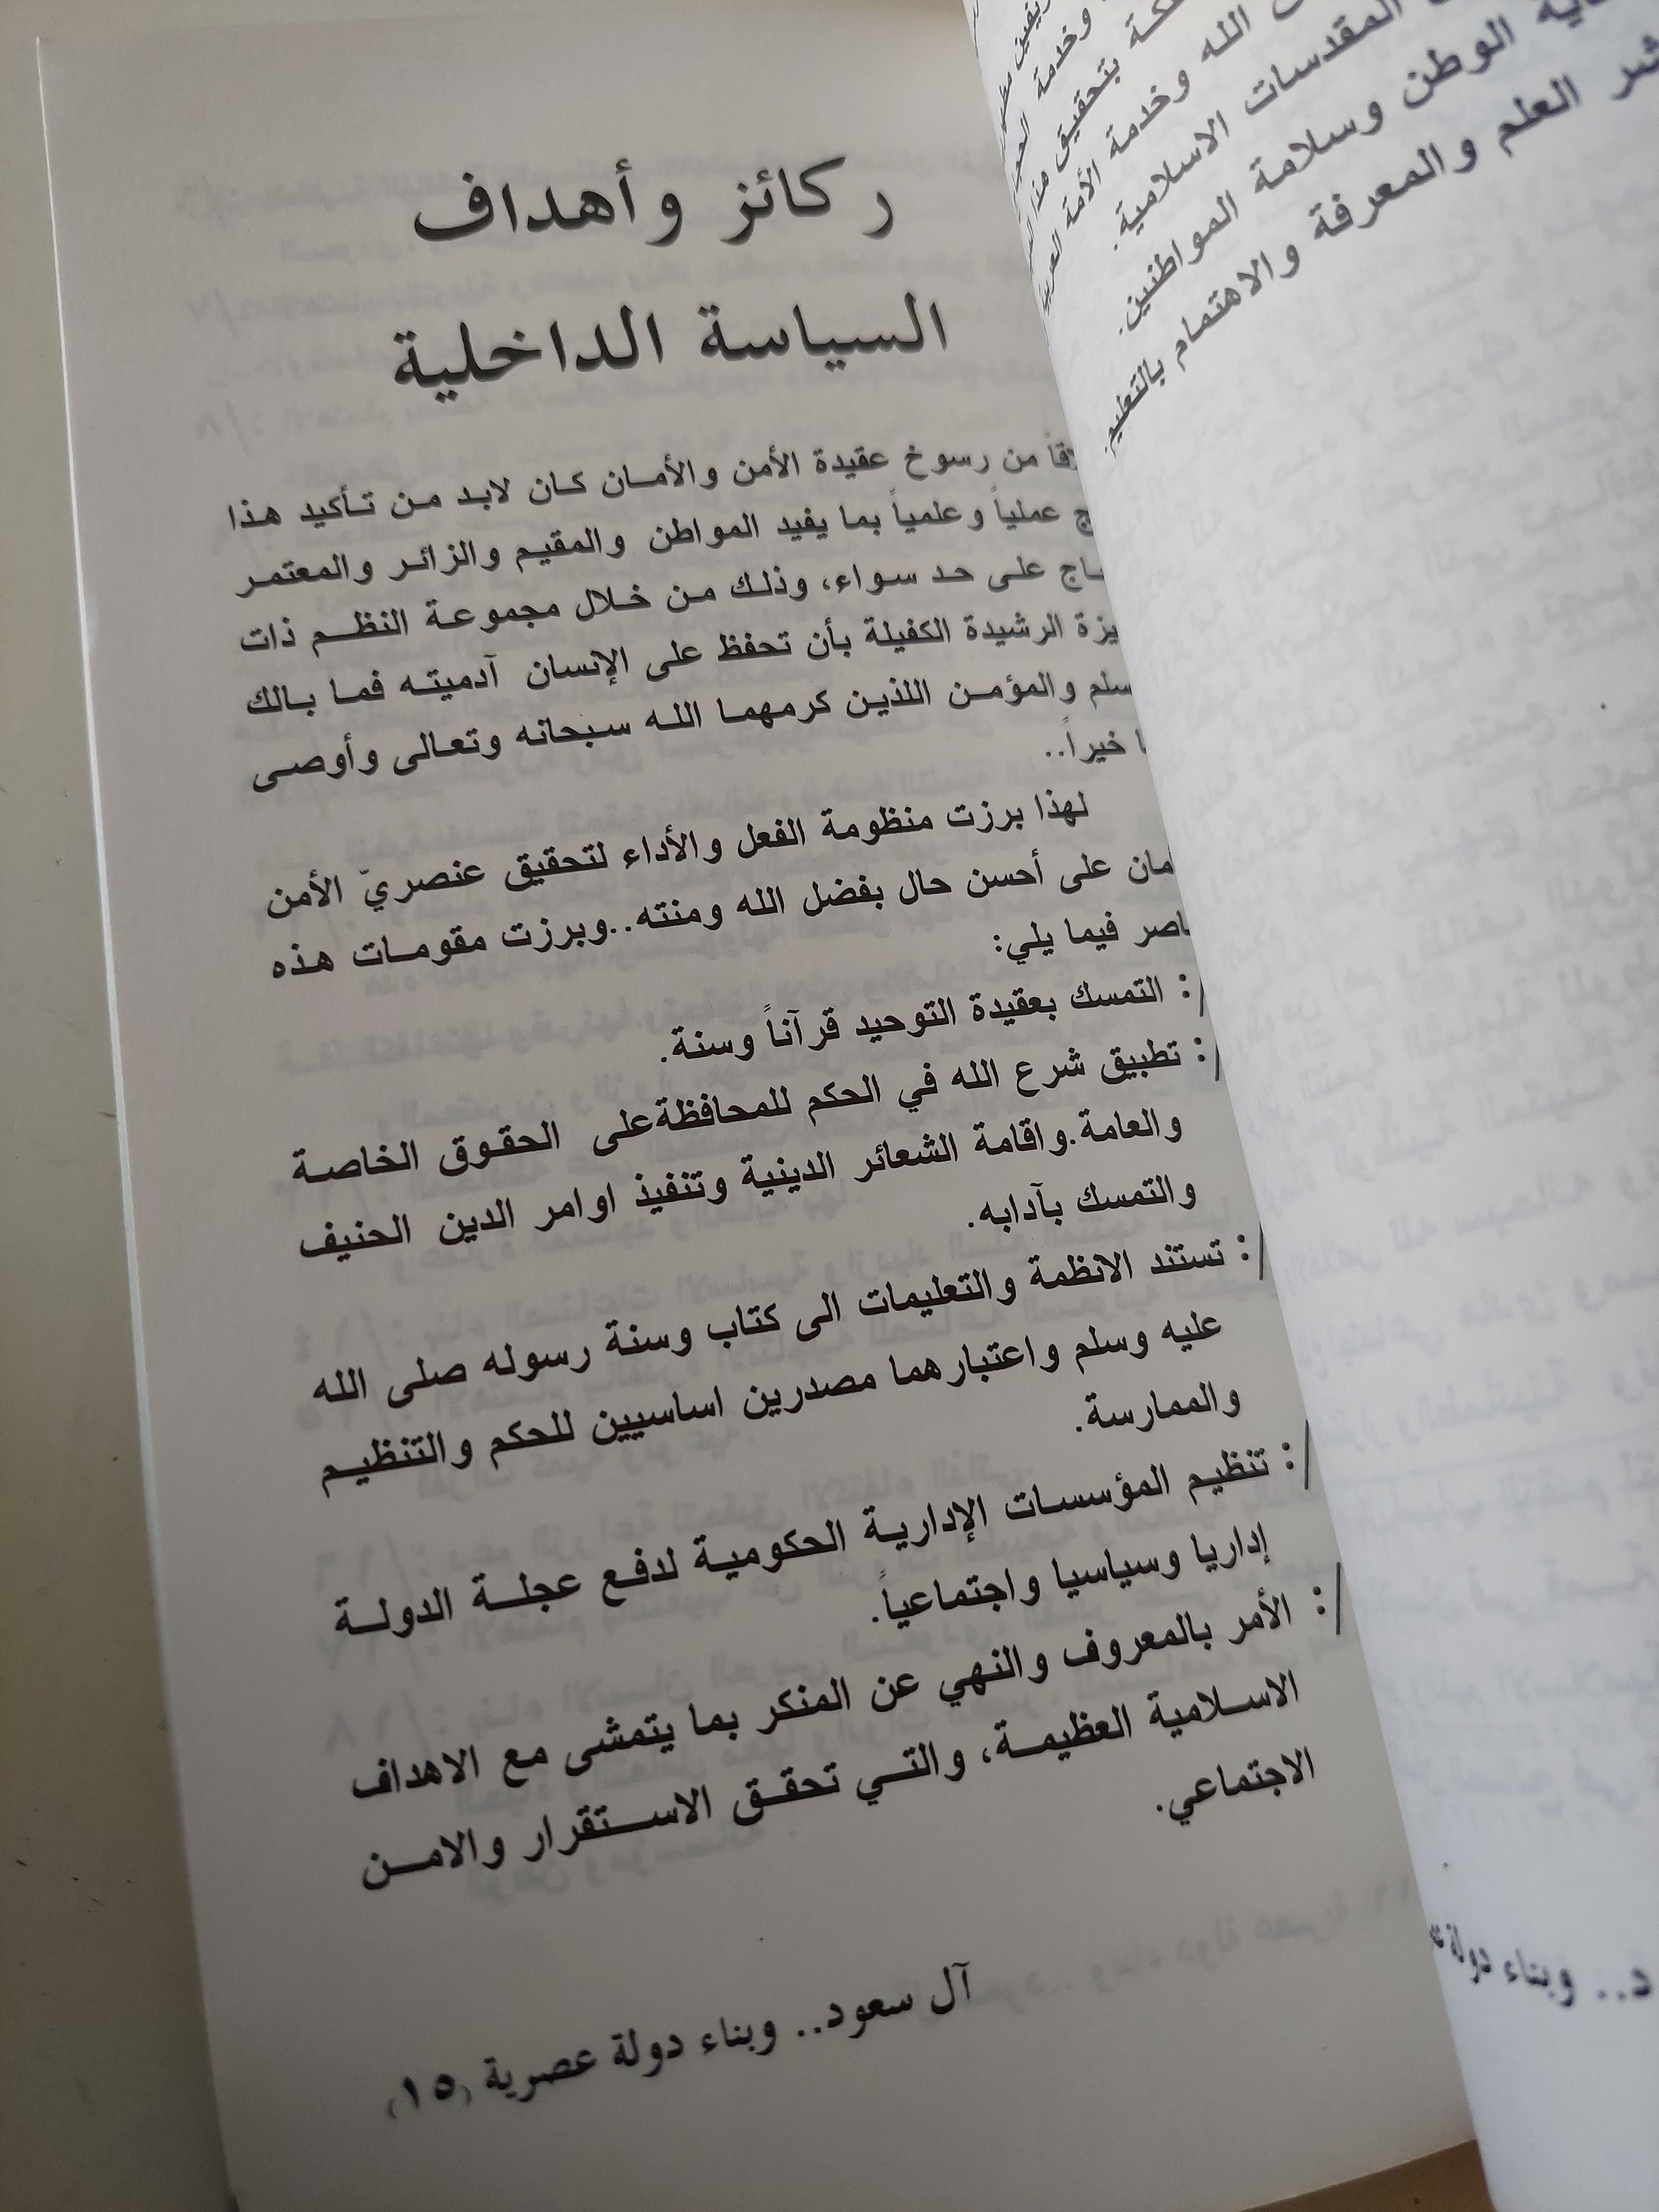 ركائز وأهداف
السياسة الداخلية
من رسوخ عقيدة الأمن والأمان كان لابد من تأكيد هذا
عملياً وعلمياً بما يفيد المواطن والمقيم والزائر والمعتمر
على حد سواء، وذلك من خلال مجموعة النظم ذات
الرشيدة الكفيلة بأن تحفظ على الإنسان آدميته فما بالك
والمؤمن اللذين كرمهما الله سبحانه وتعالى وأوصى
خيراً..
لهذا برزت منظومة الفعل والأداء لتحقيق عنصريّ الأمن
على أحسن حال بفضل الله ومنته..وبرزت مقومات هذه
فيما يلي:
/: التمسك بعقيدة التوحيد قرآناً وسنة.
/: تطبيق شرع الله في الحكم للمحافظةعلى الحقوق الخاصة
والعامة.واقامة الشعائر الدينية وتنفيذ اوامر الدين الحنيف
والتمسك بآدابه.
/: تستند الانظمة والتعليمات الى كتاب وسنة رسوله صلى الله
عليه وسلم واعتبارهما مصدرين اساسيين للحكم والتنظيم
والممارسة.
/: تنظيم المؤسسات الإدارية الحكومية لدفع عجلة الدولة
إداريا وسياسيا واجتماعياً.
/: الأمر بالمعروف والنهي عن المنكر بما يتمشى مع الاهداف
الاسلامية العظيمة، والتي تحقق الاستقرار والامن
الاجتماعي.
آل سعود.. وبناء دولة عصرية (١٥)
وخدمة
بتحقيق
الله وخدمة الأمة
المقدسات الاسلامية.
الوطن وسلامة المواطنين.
العلم والمعرفة والاهتمام بالتعليم.
د.. وبناء دولة